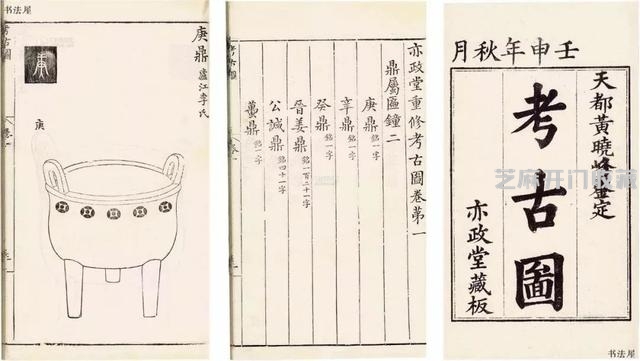 壬申年秋月
天都黃曉峰鑒定
考古圖
亦政堂藏板
芝麻开门收藏
书法屋
亦政堂重修考古圖卷第一
鼎屬匜鐘二
庚鼎 銘一字
辛鼎 銘一字
癸鼎 銘一字
晉姜鼎 銘一百二十一字
公諴鼎 銘四十一字
蠆鼎 銘一字
庚鼎 廬江李氏
庚
考古圖
卷一
书法屋